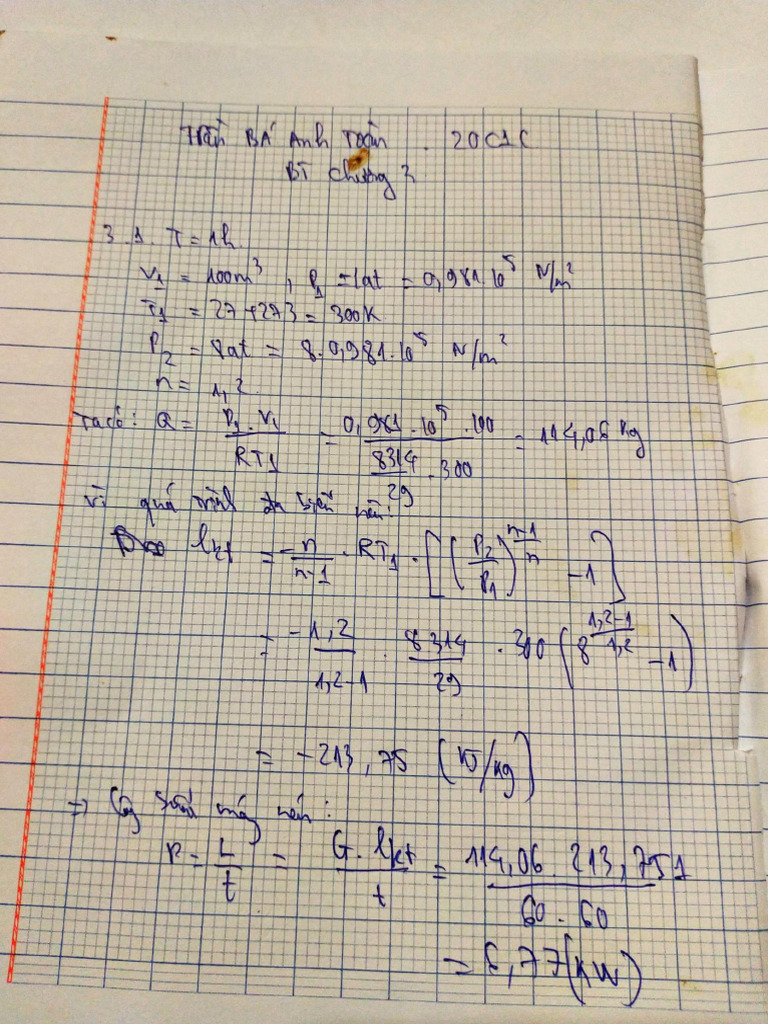 Trần BÁ Anh Toàn . 20C1C
BT chương 3
3.1. T = 1h.
V1 = 100m³ , P1 = 1at = 0,981.10⁵ N/m²
T1 = 27+273 = 300K
P2 = 8at = 8.0,981.10⁵ N/m²
n = 1,2
Ta có: G = P1.V1 / RT1 = 0,981.10⁵.100 / (8314/29 . 300) = 114,06 kg
Vì quá trình đa biến nên:
lkt = -n/(n-1) . RT1 . [(P2/P1)^((n-1)/n) - 1]
= -1,2/(1,2-1) . 8314/29 . 300 (8^((1,2-1)/1,2) - 1)
= -213,75 (KJ/kg)
=> Công suất máy nén:
P = L/t = G.lkt/t = 114,06.213,751 / 60.60
= 6,77 (KW)